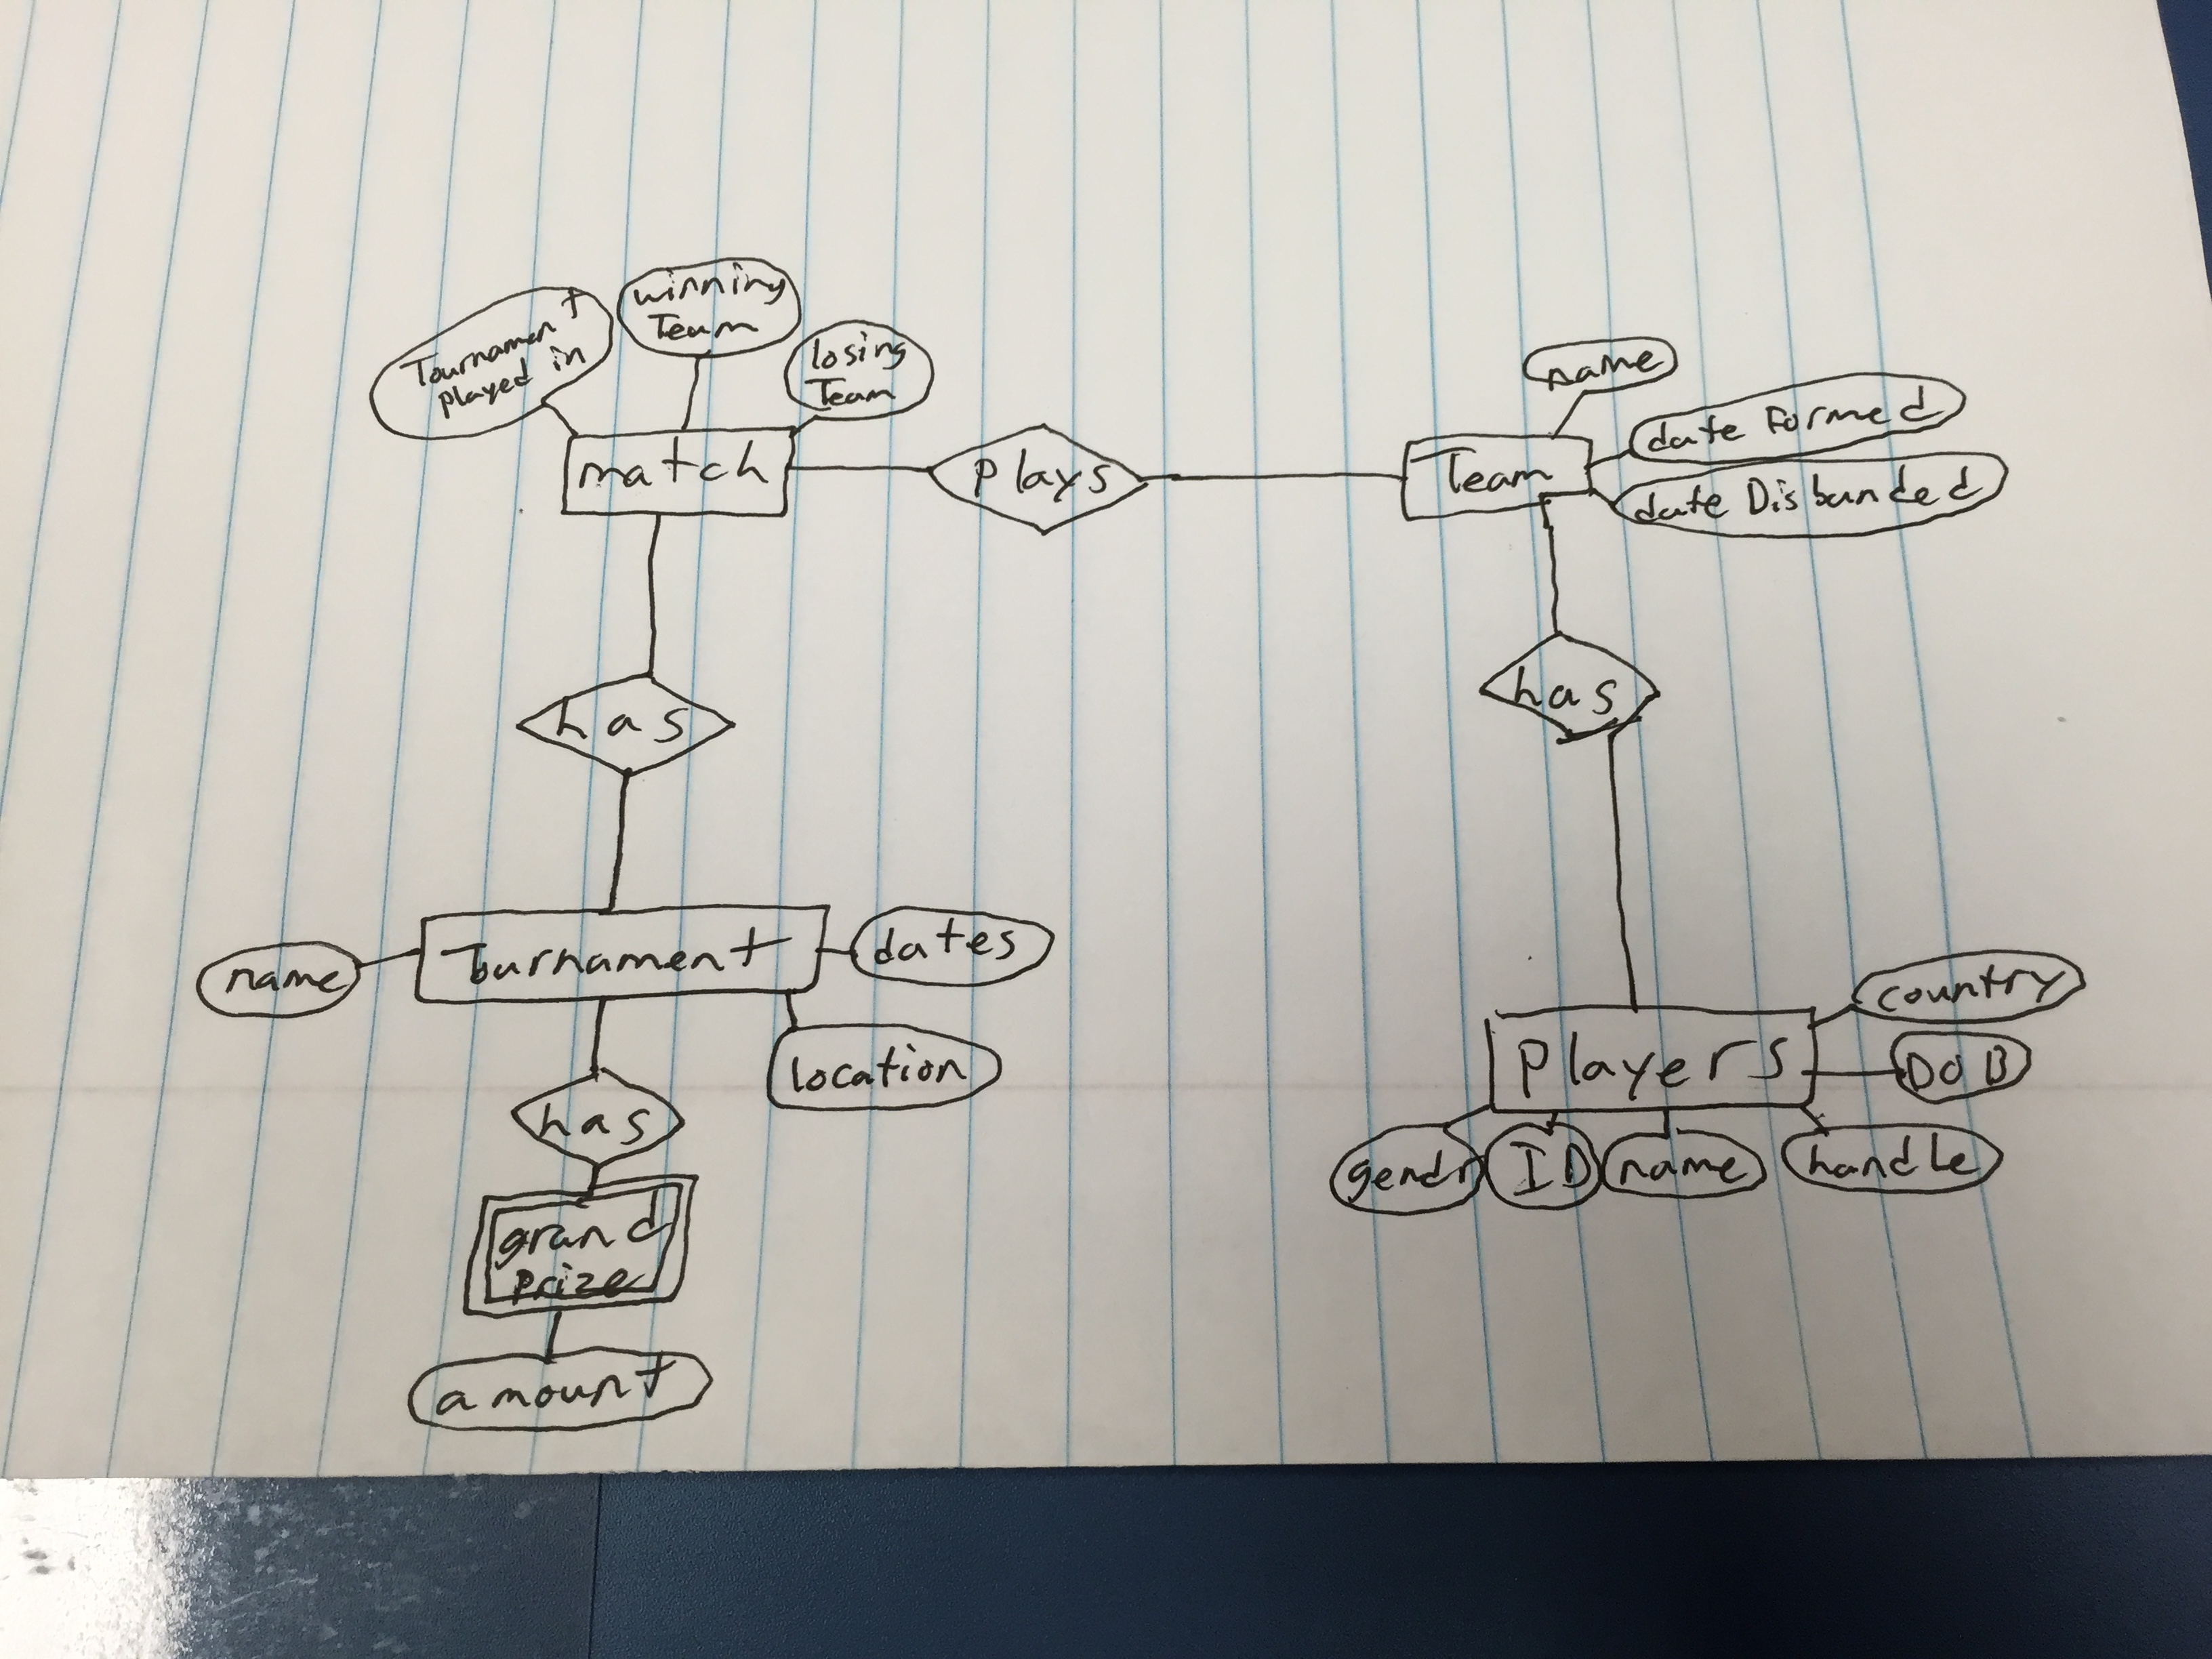 Tournament
played in
winning
Team
losing
Team
match
plays
Team
name
date Formed
date Disbanded
has
has
name
Tournament
dates
location
has
grand
prize
amount
players
country
DOB
gendr
ID
name
handle